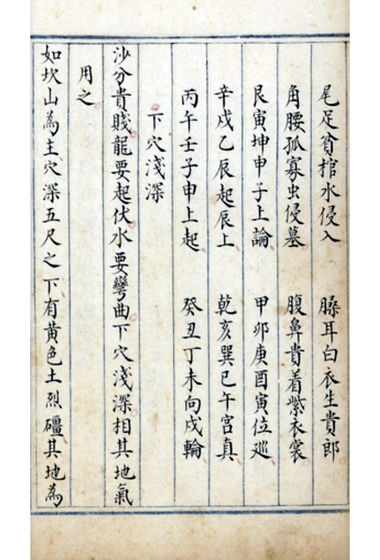 尾足貧棺水侵入 腦耳白衣生貴郎
角腰孤寡虫侵墓 腹鼻貴着紫衣裳
艮寅坤申子上論 甲卯庚酉寅位巡
辛戌乙辰起辰上 乾亥巽巳午宮真
丙午壬子申上起 癸丑丁未向戌輪
下穴淺深
沙分貴賤龍要起伏水要彎曲下穴淺深相其地氣
用之
如坎山為主穴深五尺之下有黄色土烈礓其地為